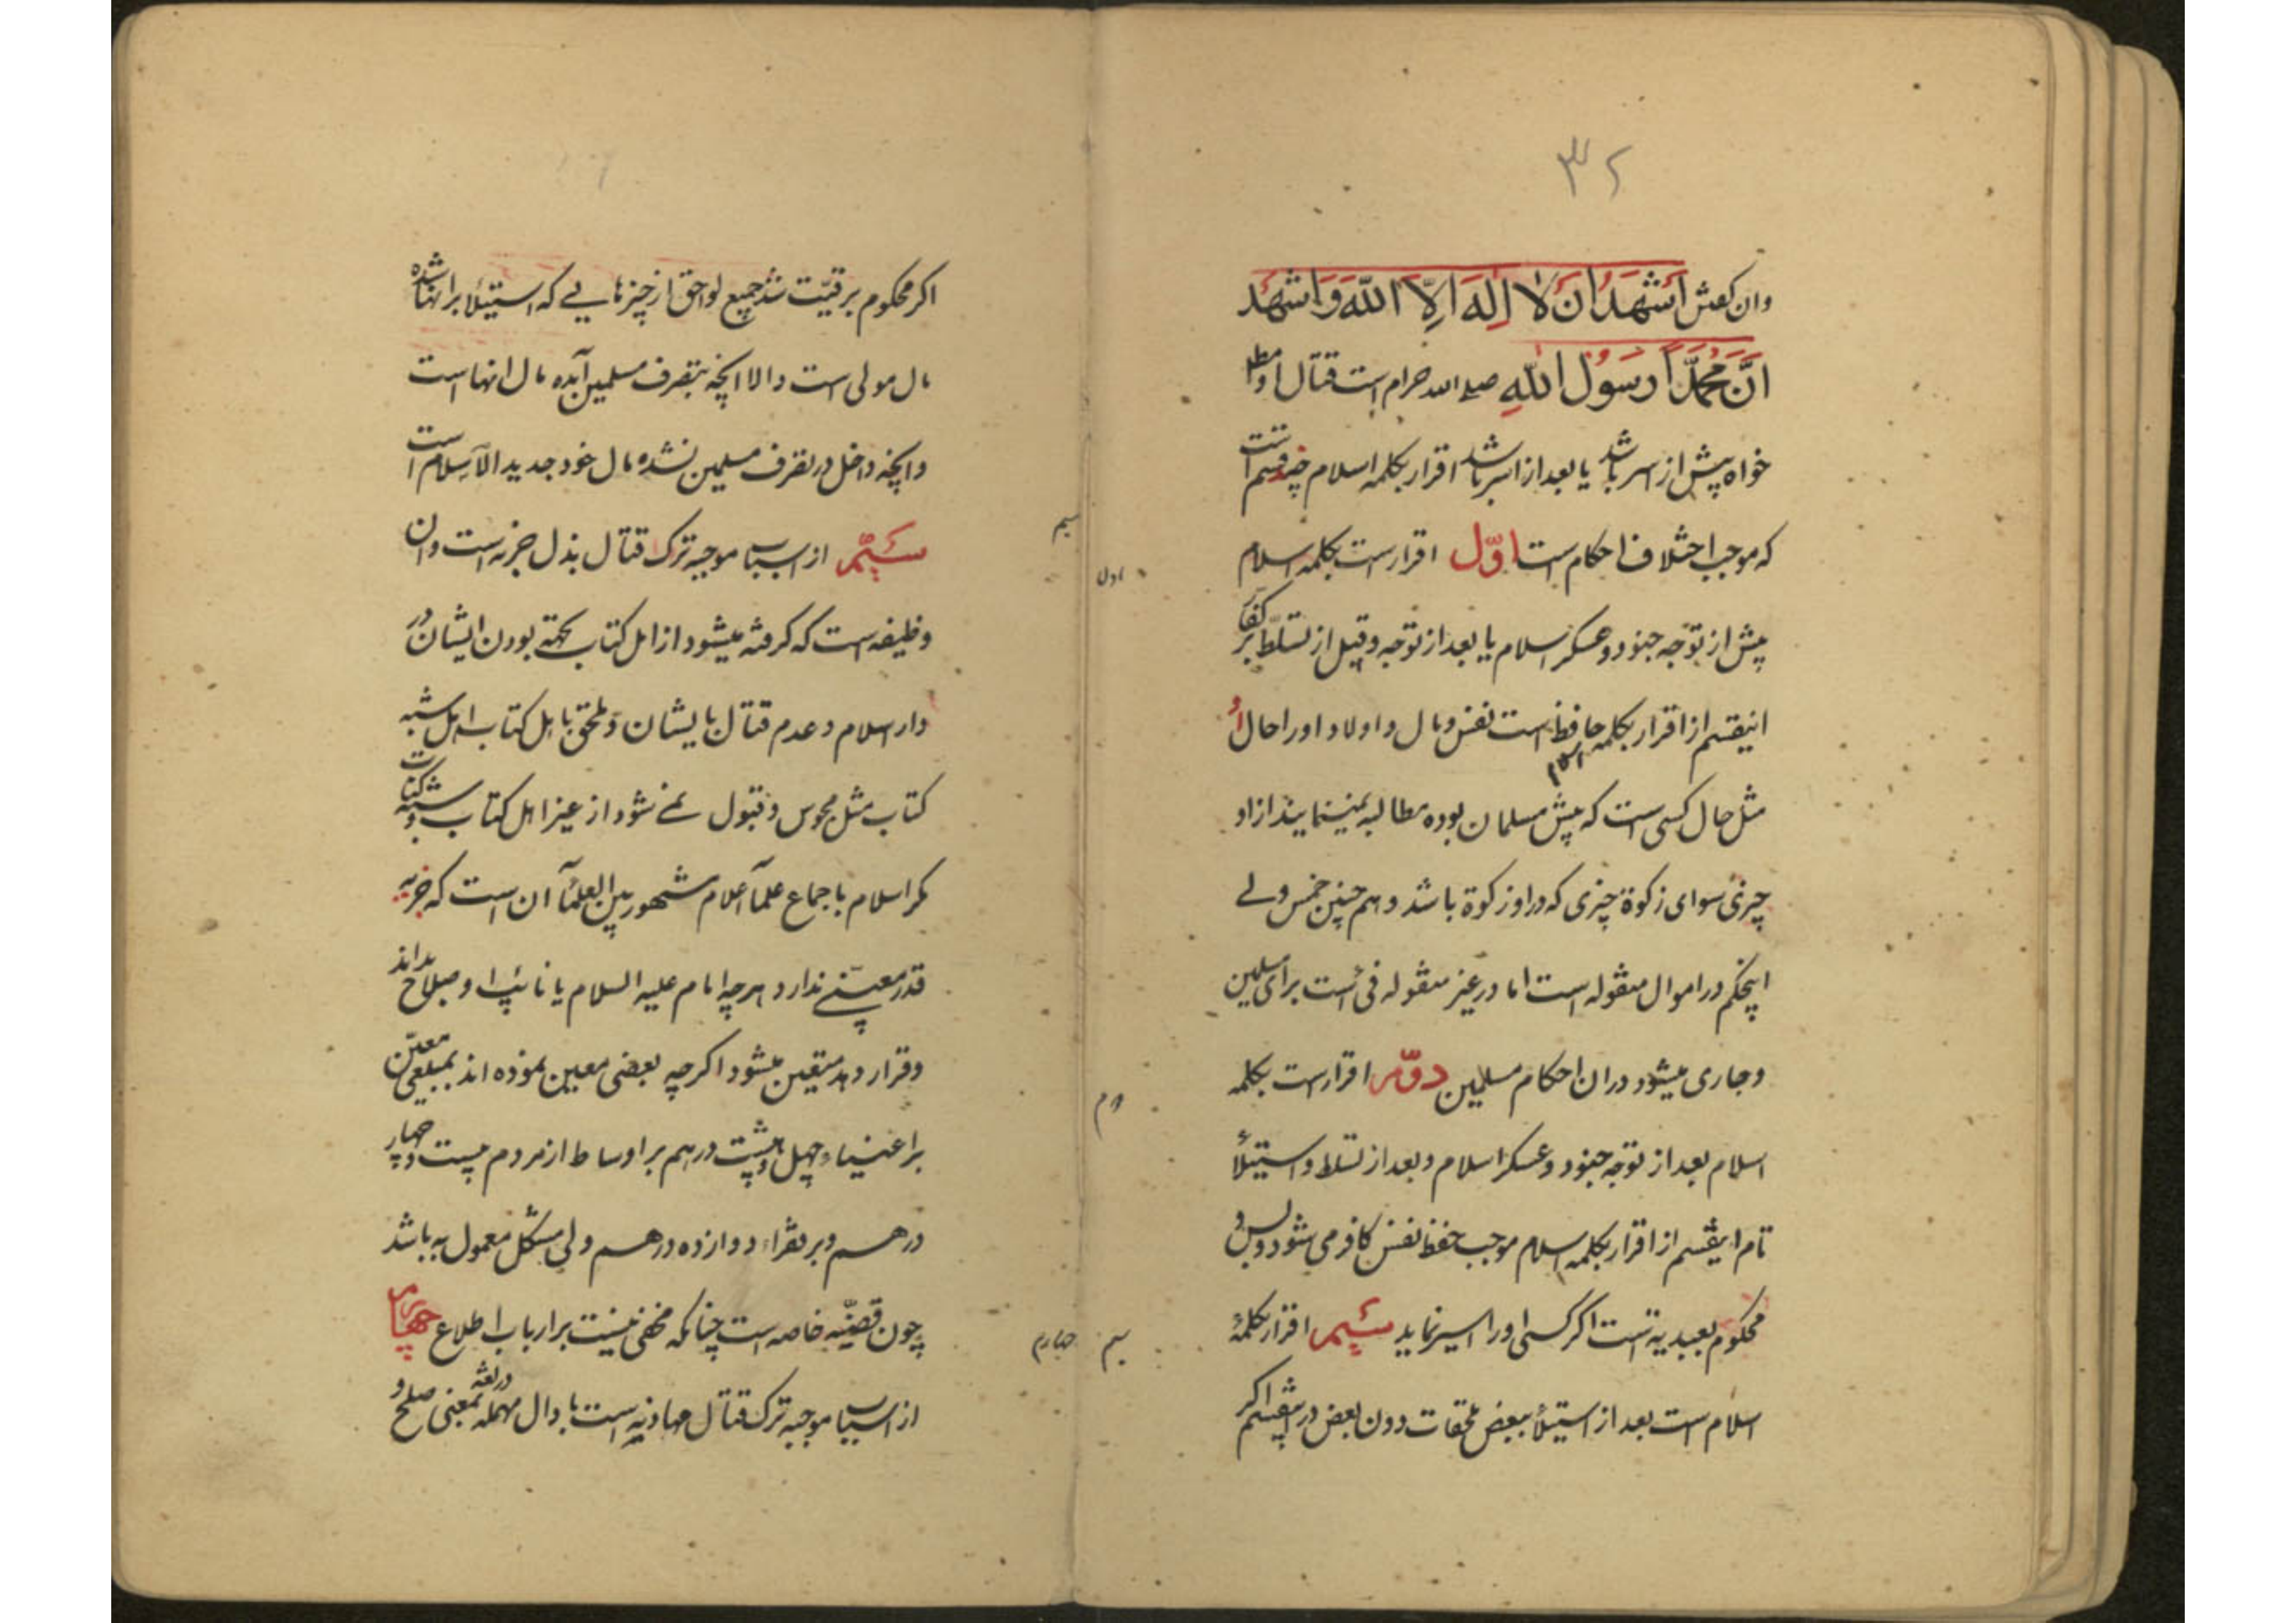 ۳۲
وان کفتن اَشْهَدُ اَنْ لا اِلهَ اِلاَّ اللّهَ وَ اَشْهَدُ
اَنَّ مُحَمَّدًا رَسُوْلُ اللّهِ صلی الله حرام است قتال او مط
خواه پیش از اسر باشد یا بعد از اسر باشد اقرار بکلمه اسلام چند قسم است
که موجب اختلاف احکام است اوّل اقرار است بکلمه اسلام
پیش از توجه جنود و عسکر اسلام یا بعد از توجه و قبل از تسلّط بر کفار
اینقسم از اقرار بکلمه اسلام حافظ است نفس و مال و اولاد او را حال او
مثل حال کسی است که پیش مسلمان بوده مطالبه نمینمایند از او
چیزی سوای زکوة چیزی که در او زکوة باشد و هم چنین خمس ولے
اینحکم در اموال منقوله است اما در غیر منقوله فئ است برای مسلمین
و جاری میشود در ان احکام مسلمین دوّم اقرار است بکلمه
اسلام بعد از توجه جنود و عسکر اسلام و بعد از تسلط و استیلأ
تام اینقسم از اقرار بکلمه اسلام موجب حفظ نفس کافر می شود و بس و
محکوم بعبدیة است اکر کسی او را اسیر نماید سیُم اقرار بکلمهٔ
اسلام است بعد از استیلأ ببعض ملحقات دون بعض در اینقسم اکر
اول
دوم
سیم
اکر محکوم برقیّت شد جمیع لواحق از چیزهایے که استیلأ بر انها شده
مال مولی است و الا انچه بتصرف مسلمین آمده مال انها است
و انچه داخل در تصرف مسلمین نشده مال خود جدید الاسلام است
سیُم از اسباب موجبه ترک قتال بذل جزیه است و ان
وظیفه است که کرفته میشود از اهل کتاب بجهة بودن ایشان در
دار اسلام و عدم قتال با یشان و ملحق باهل کتاب اهل شبه
کتاب مثل مجوس و قبول نمے شود از غیر اهل کتاب و شبه کتاب
مکر اسلام باجماع علمآ اعلام مشهور بین العلمأ آن است که جزیه
قدر معینے ندارد هر چه امام علیه السلام یا نائب او صلاح بداند
و قرار دهد متعین میشود اکرچه بعضی معین نموده اند بمبلغی معیّن
بر اغنیاء چهل و هشت درهم بر اوساط از مردم بیست و چهار
درهم و بر فقراء دوازده درهم ولی مشکل معمول به باشد
چون قضیّه خاصه است چنانکه مخفی نیست بر ارباب اطلاع چهارم
از اسباب موجبه ترک قتال مهادنه است با دال مهمله در لغة بمعنی صلح و
سیم
چهارم